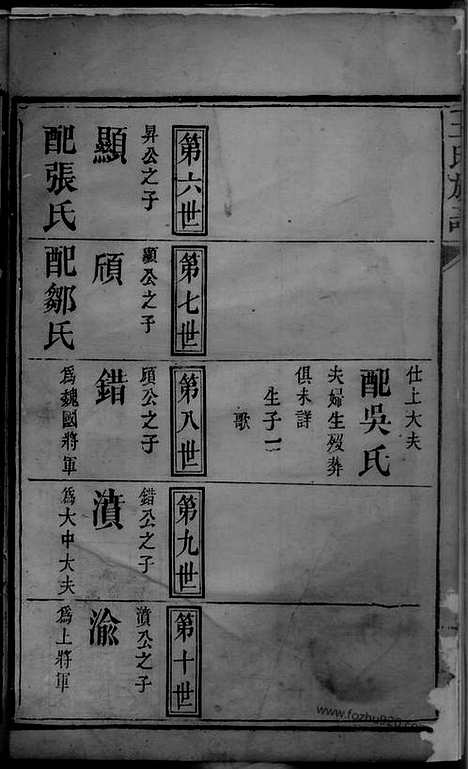 王氏族譜
第六世
昇公之子
顯
配張氏
第七世
顯公之子
頎
配鄒氏
仕上大夫
配吳氏
夫婦生歿葬
俱未詳
生子二
歌
第八世
頎公之子
錯
為魏國將軍
第九世
錯公之子
濆
為大中大夫
第十世
濆公之子
渝
為上將軍
www.fozhu920.com